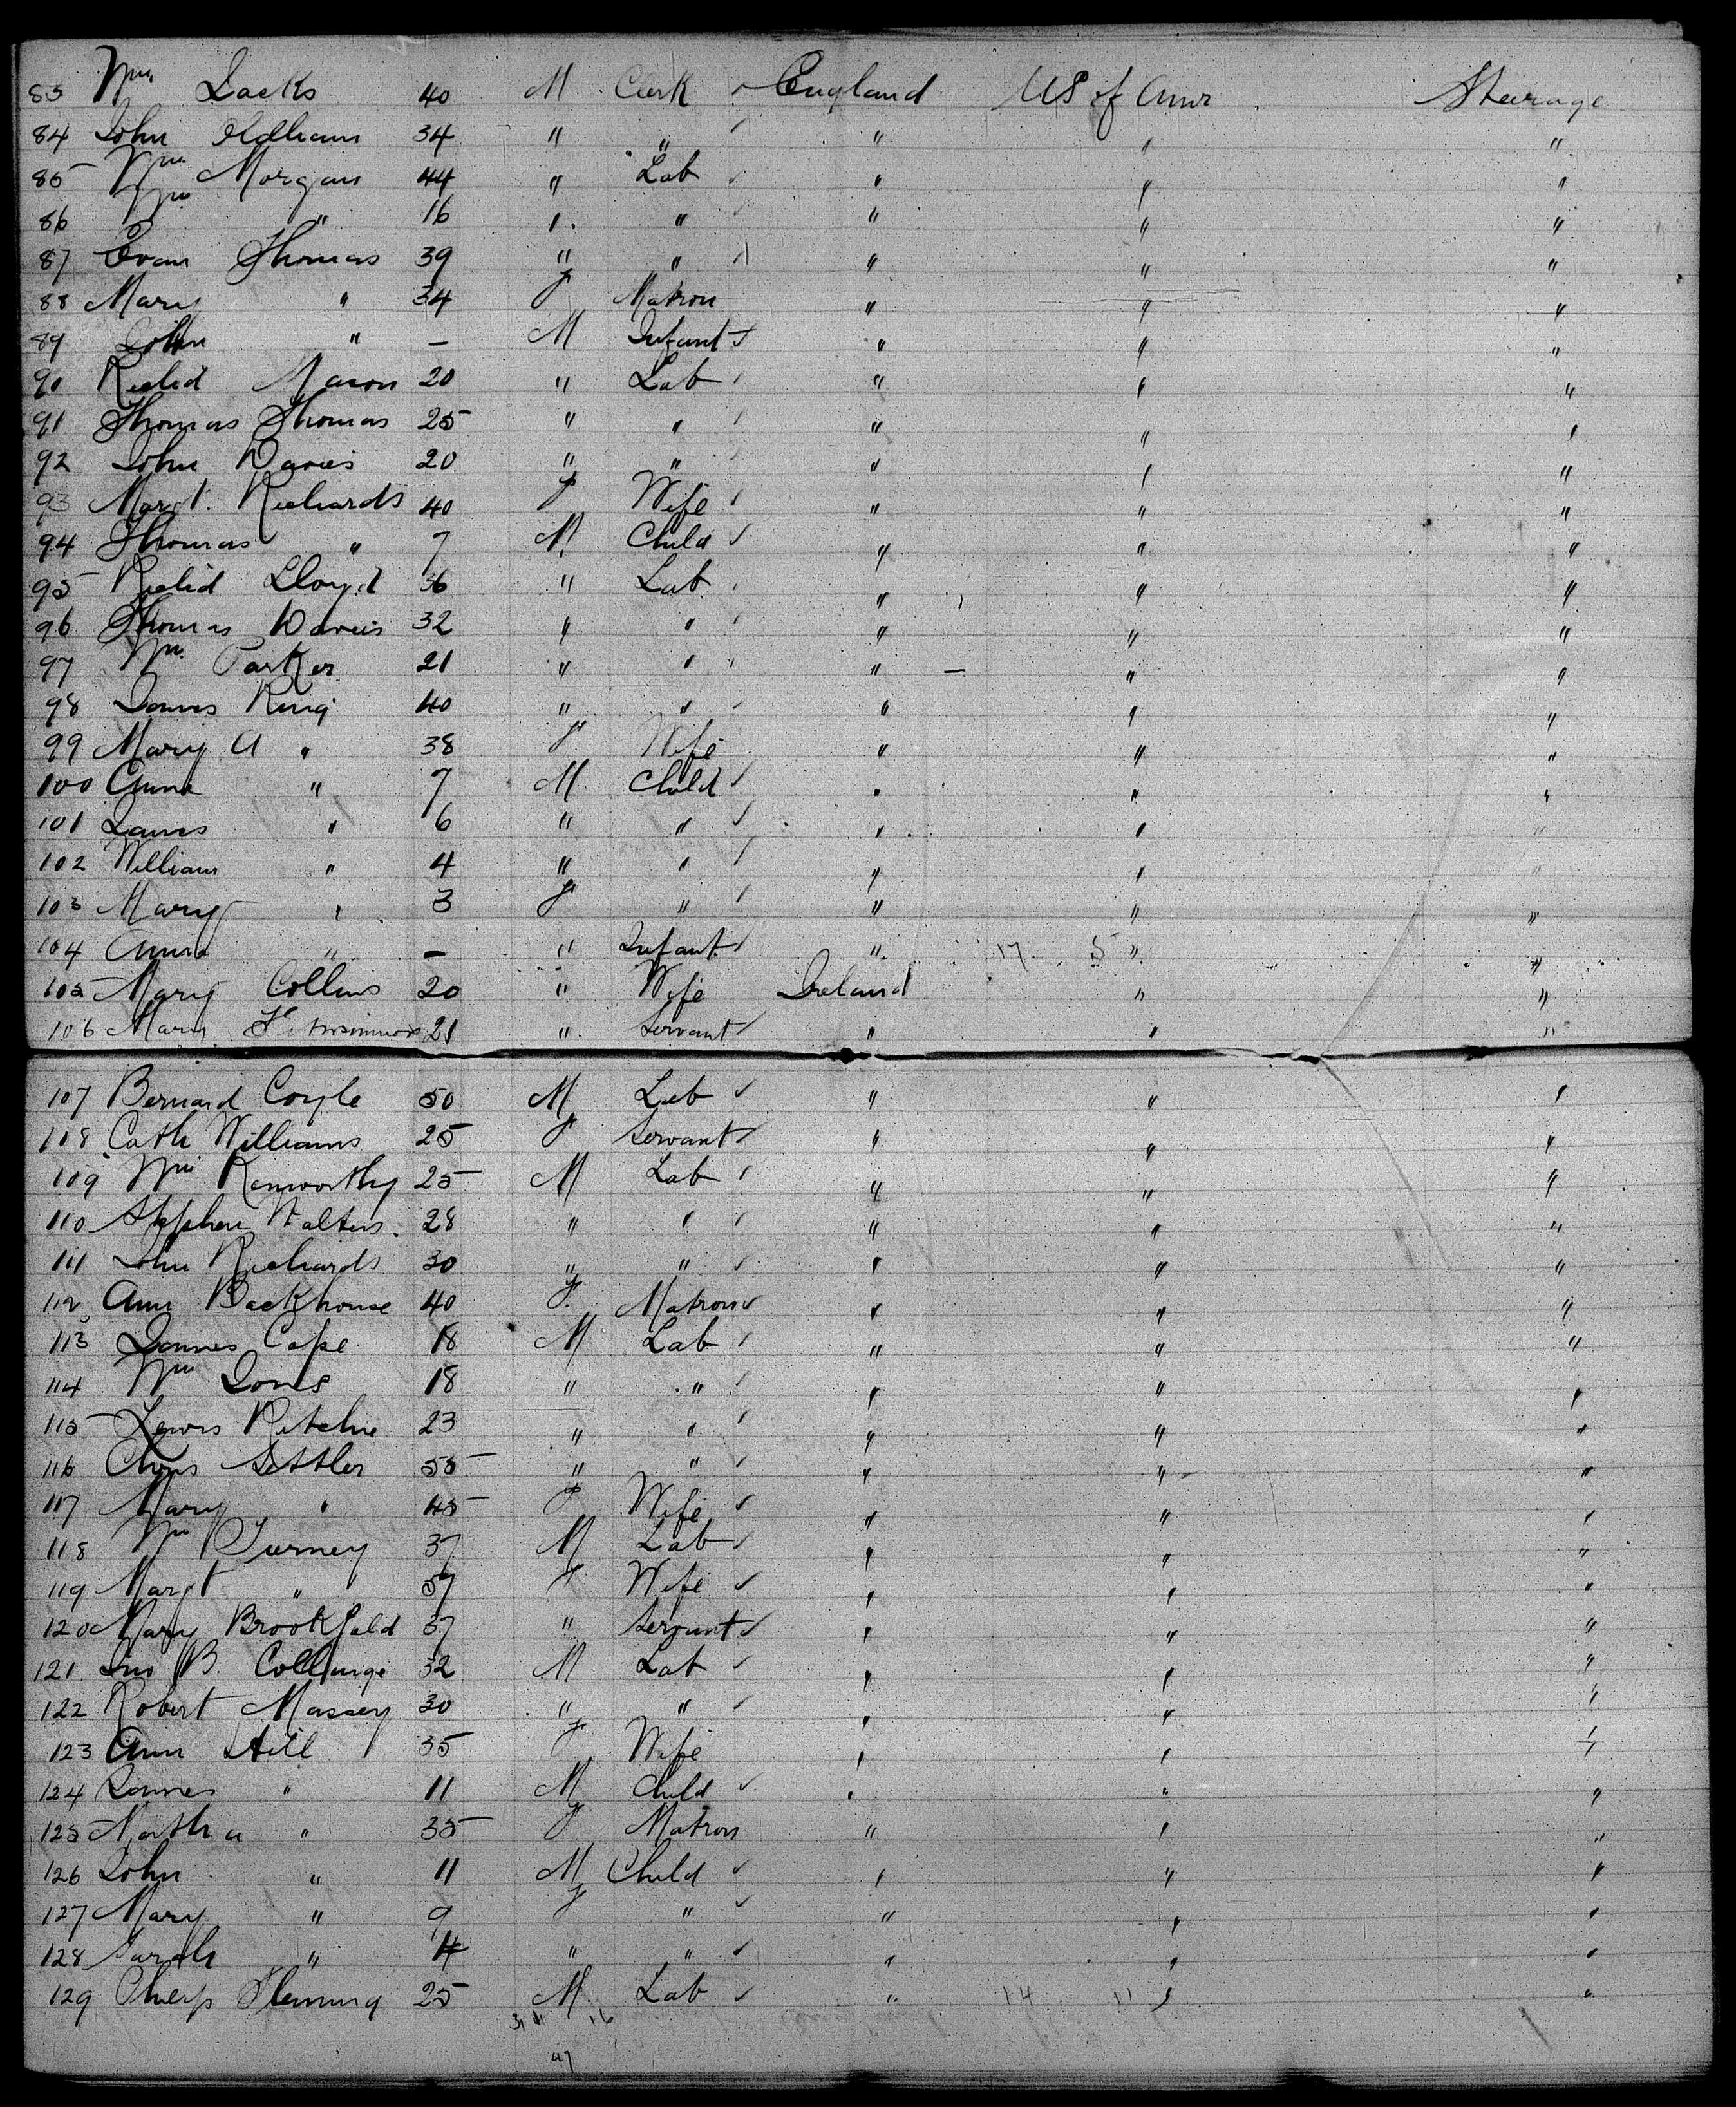 83 Wm Jacks 40 M Clerk England US of Amr Steerage
84 John Oldham 34 " " " " "
85 Wm Morgan 44 " Lab " " "
86 Wm " 16 " " " " "
87 Evan Thomas 39 " " " " "
88 Mary " 34 F Matron " " "
89 John " - M Infant " " "
90 Richd Mason 20 " Lab " " "
91 Thomas Thomas 25 " " " " "
92 John Davies 20 " " " " "
93 Margt. Richards 40 F Wife " " "
94 Thomas " 7 M Child " " "
95 Richd Lloyd 36 " Lab " " "
96 Thomas Davies 32 " " " " "
97 Wm Parker 21 " " " " "
98 James King 40 " " " " "
99 Mary A " 38 F Wife " " "
100 Anna " 7 M Child " " "
101 James " 6 " " " " "
102 William " 4 " " " " "
103 Mary " 3 F " " " "
104 Anna " - " Infant " 17 5 " "
105 Mary Collins 20 " Wife Ireland " "
106 Mary Fitzsimmons 21 " Servant " " "
107 Bernard Coyle 50 M Lab " " "
108 Cath Williams 25 F Servant " " "
109 Wm Kenworthy 25 M Lab " " "
110 Stephen Walters 28 " " " " "
111 John Richards 30 " " " " "
112 Ann Backhouse 40 F Matron " " "
113 James Cape 18 M Lab " " "
114 Wm Jones 18 " " " " "
115 Lewis Ritchie 23 " " " " "
116 Settler 55 " " " " "
117 Mary " 45 F Wife " " "
118 Wm 37 M Lab " " "
119 Margt " 37 F Wife " " "
120 Mary Brookfield 37 " Servant " " "
121 Jno B. Collinge 32 M Lab " " "
122 Robert Massey 30 " " " " "
123 Ann Hill 35 F Wife " " "
124 James " 11 M Child " " "
125 Martha " 35 F Matron " " "
126 John " 11 M Child " " "
127 Mary " 9 F " " " "
128 Sarah " 4 " " " " "
129 Fleming 25 M Lab " 14 11 " "